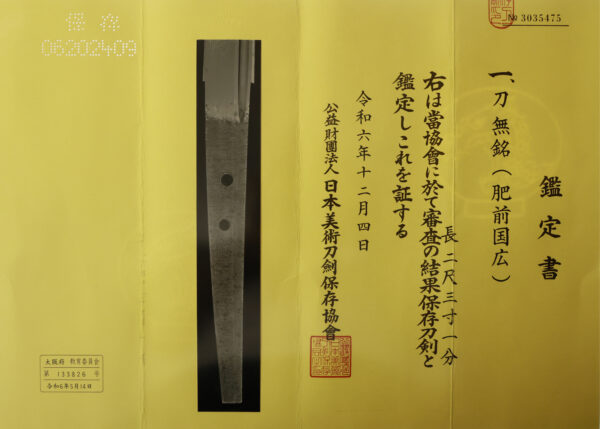 № 3035475
鑑定書
一、刀 無銘(肥前国広)
長 二尺三寸一分
右は當協會に於て審査の結果保存刀剣と
鑑定しこれを証する
令和六年十二月四日
公益財團法人 日本美術刀劍保存協會
保存
06202409
大阪府 教育委員会
第 133826 号
令和6年5月14日